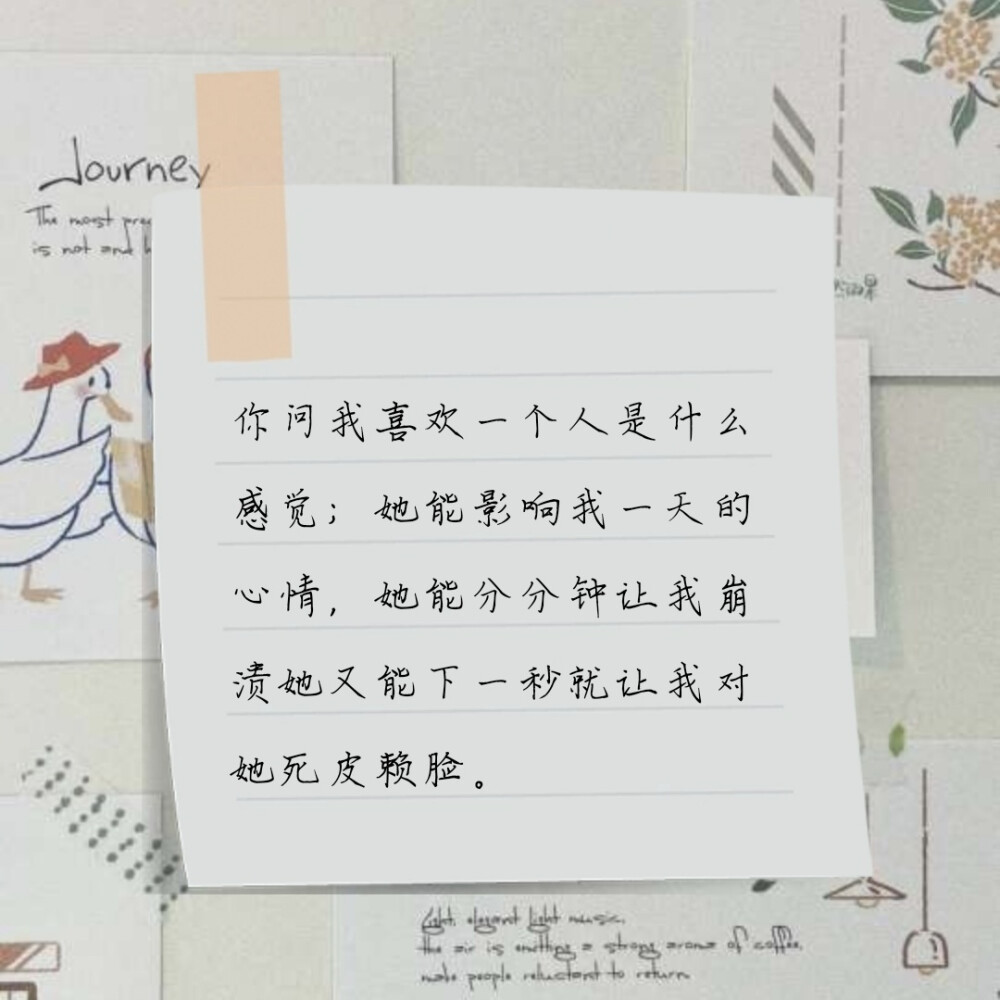 Journey
The most
is not and
你问我喜欢一个人是什么
感觉；她能影响我一天的
心情，她能分分钟让我崩
溃她又能下一秒就让我对
她死皮赖脸。
Light, elegant light music,
the air is emitting a strong aroma of coffee,
make people reluctant to return